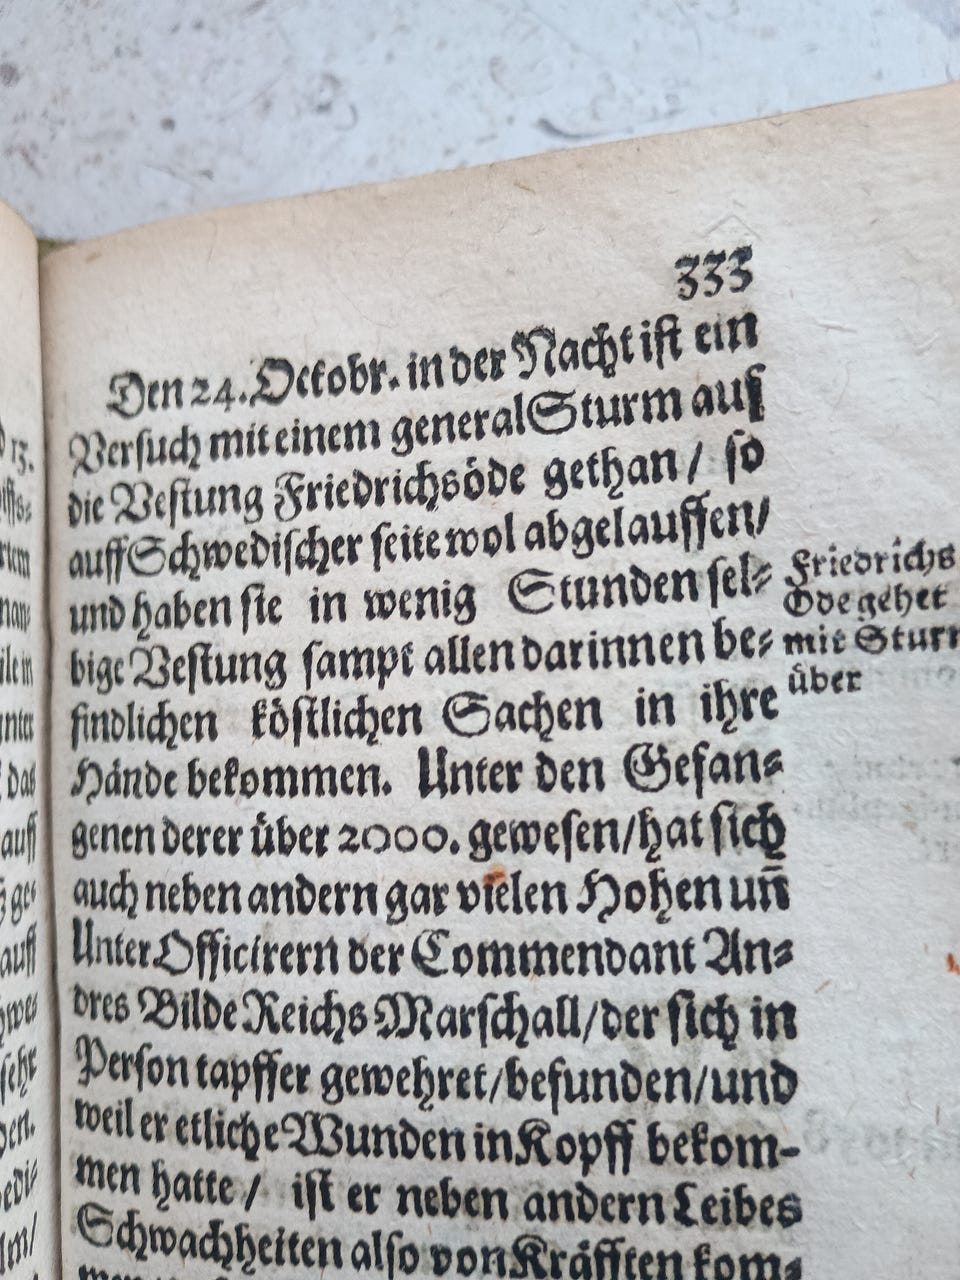 333
Den 24. Octobr. in der Nacht ist ein
Versuch mit einem general Sturm auf
die Vestung Friedrichsöde gethan / so
auff Schwedischer seite wol abgelauffen /
und haben sie in wenig Stunden sel-
bige Vestung sampt allen darinnen be-
findlichen köstlichen Sachen in ihre
Hände bekommen. Unter den Gefan-
genen derer über 2000. gewesen / hat sich
auch neben andern gar vielen Hohen un̄
Unter Officirern der Commendant An-
dres Bilde Reichs Marschall / der sich in
Person tapffer gewehret / befunden / und
weil er etliche Wunden in Kopff bekom-
men hatte / ist er neben andern Leibes
Schwachheiten also von Kräfften kom-
Friedrichs
Ode gehet
mit Stur
über
13.
das
auff
ge-
auff